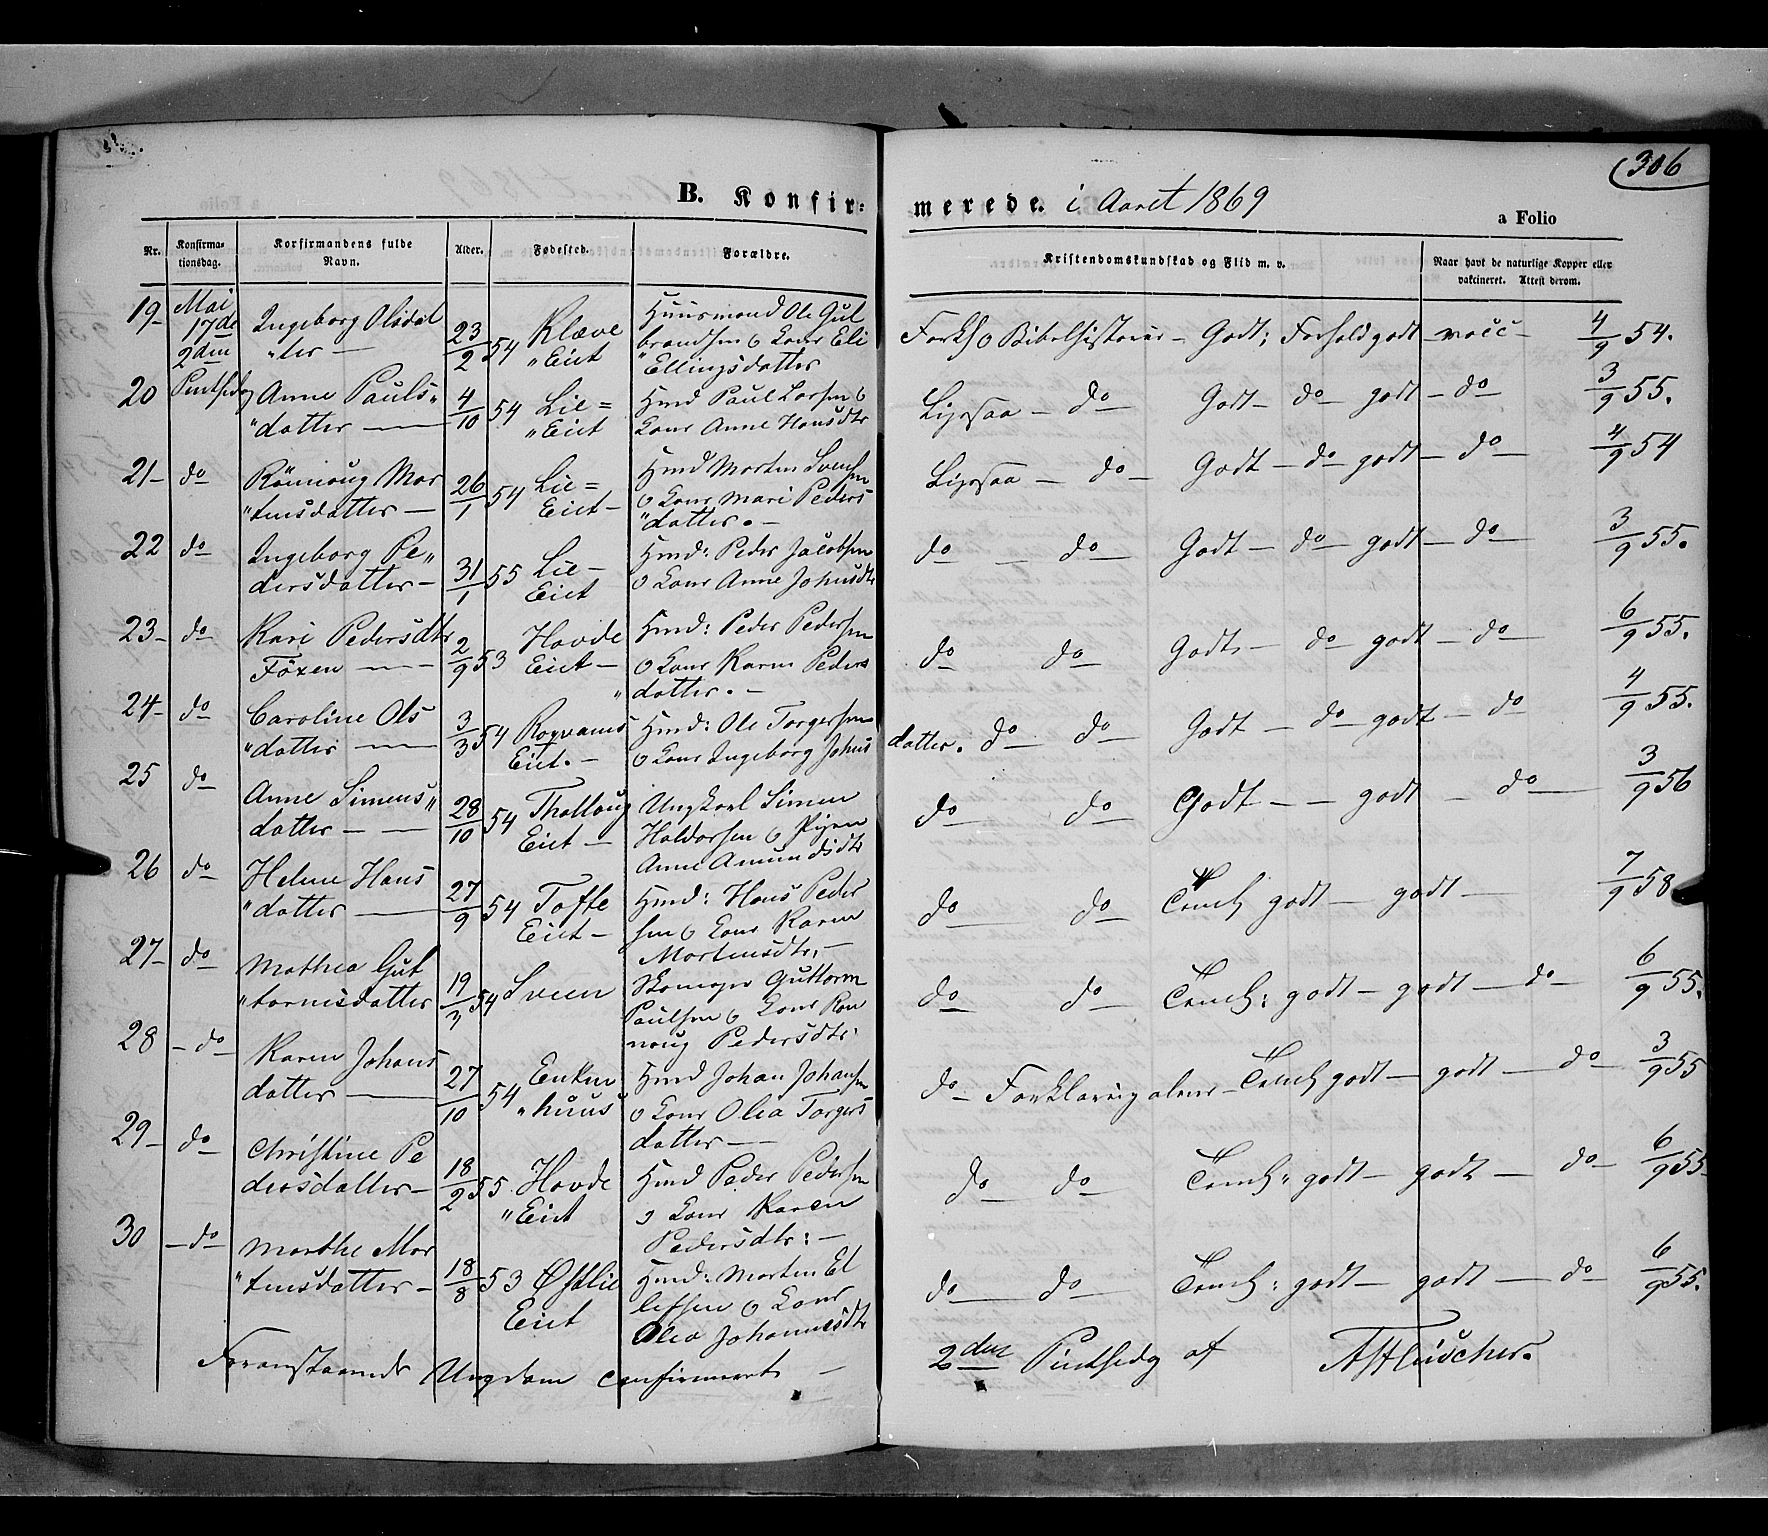 306
B. Konfir-
merede. i Aaret 1869
a Folio
Nr.
Konfirma-
tionsdag.
Korfirmandens fulde
Navn.
Alder.
Fødested.
Forældre.
Kristendomskundskab og Flid m. v.
Naar havt de naturlige Kopper eller
vakcineret. Attest derom.
19- Mai 17de 2den Pintsedag
Ingeborg Olsdat
"ter —
23/2 54
Klæve
"Eiet
Huusmand Ole Gul
brandsen o Kone Eli
"Ellingsdatter
Godt; Forhold godt - vacc - 4/9 54.
20
Anne Pauls"
"datter —
4/10 54
Lie =
"Eiet
Hmd Paul Larsen o
Kone Anne Hansdtr
do Godt - do godt - do 3/9 55.
21- do
Rönnoug Mor
"tensdatter —
26/1 54
Lie =
Eiet -
Hmd Morten Svensen
o Kone Mari Peders
"datter. -
do - Godt - do godt - do 4/9 54
22 do
Ingeborg Pe"
dersdatter -
31/1 55
Lie -
Eiet
Hmd: Peder Jacobsen
o Kone Anne Johnsdtr
do - do - Godt - do godt - do 3/9 55.
23- do
Kari Pedersdtr
Föxen —
2/9 53
Hovde
Eiet -
Hmd: Peder Pedersen
o Kone Karen Peders
"datter. -
do do Godt - do godt - do 6/9 55.
24- do
Caroline Ols
"datter —
3/3 54
Eiet. -
Hmd: Ole Torgersen
o Kone Ingeborg Johns
datter. do do Godt - do godt - do 4/9 55.
25 do
Anne Simens"
datter —
28/10 54
Thalloug
Eiet -
Ungkarl Simen
Haldorsen o Pigen
Anne Amundsdtr
do do Godt - - godt - do 3/9 56
26 do
Helene Hans
"datter —
27/9 54
Tofte
Eiet -
Hmd: Hans Peder
sen o Kone Karen
Mortensdtr: -
do do godt - godt — 7/9 58
27- do
Mathea Gut
"tormsdatter
19/3 54
Sveen
Skomager Guttorm
Paulsen o Kone Ron
noug Pedersdtr.
do do godt - godt - do 6/9 55.
28 - do
Karen Johans
datter —
27/10 54
Enken
"huus
Hmd Johan Johansen
o Kone Olea Torgers
datter —
do - Forklaring alene - godt - godt - do 3/9 55
29- do
Christine Pe
dersdatter -
18/2 55
Hovde
"Eiet
Hmd Peder Pedersen
o Kone Karen
Pedersdtr: -
do do godt - godt - do 6/9 55
30 - do
Marthe Mor
"tensdatter -
18/8 53
Østlie
Eiet
Hmd: Morten El
lefsen o Kone
Olea Johannesdtr
do do godt - godt - do 6/9 55.
Foranstaaende Ungdom confirmeret - 2den Pintsedag af